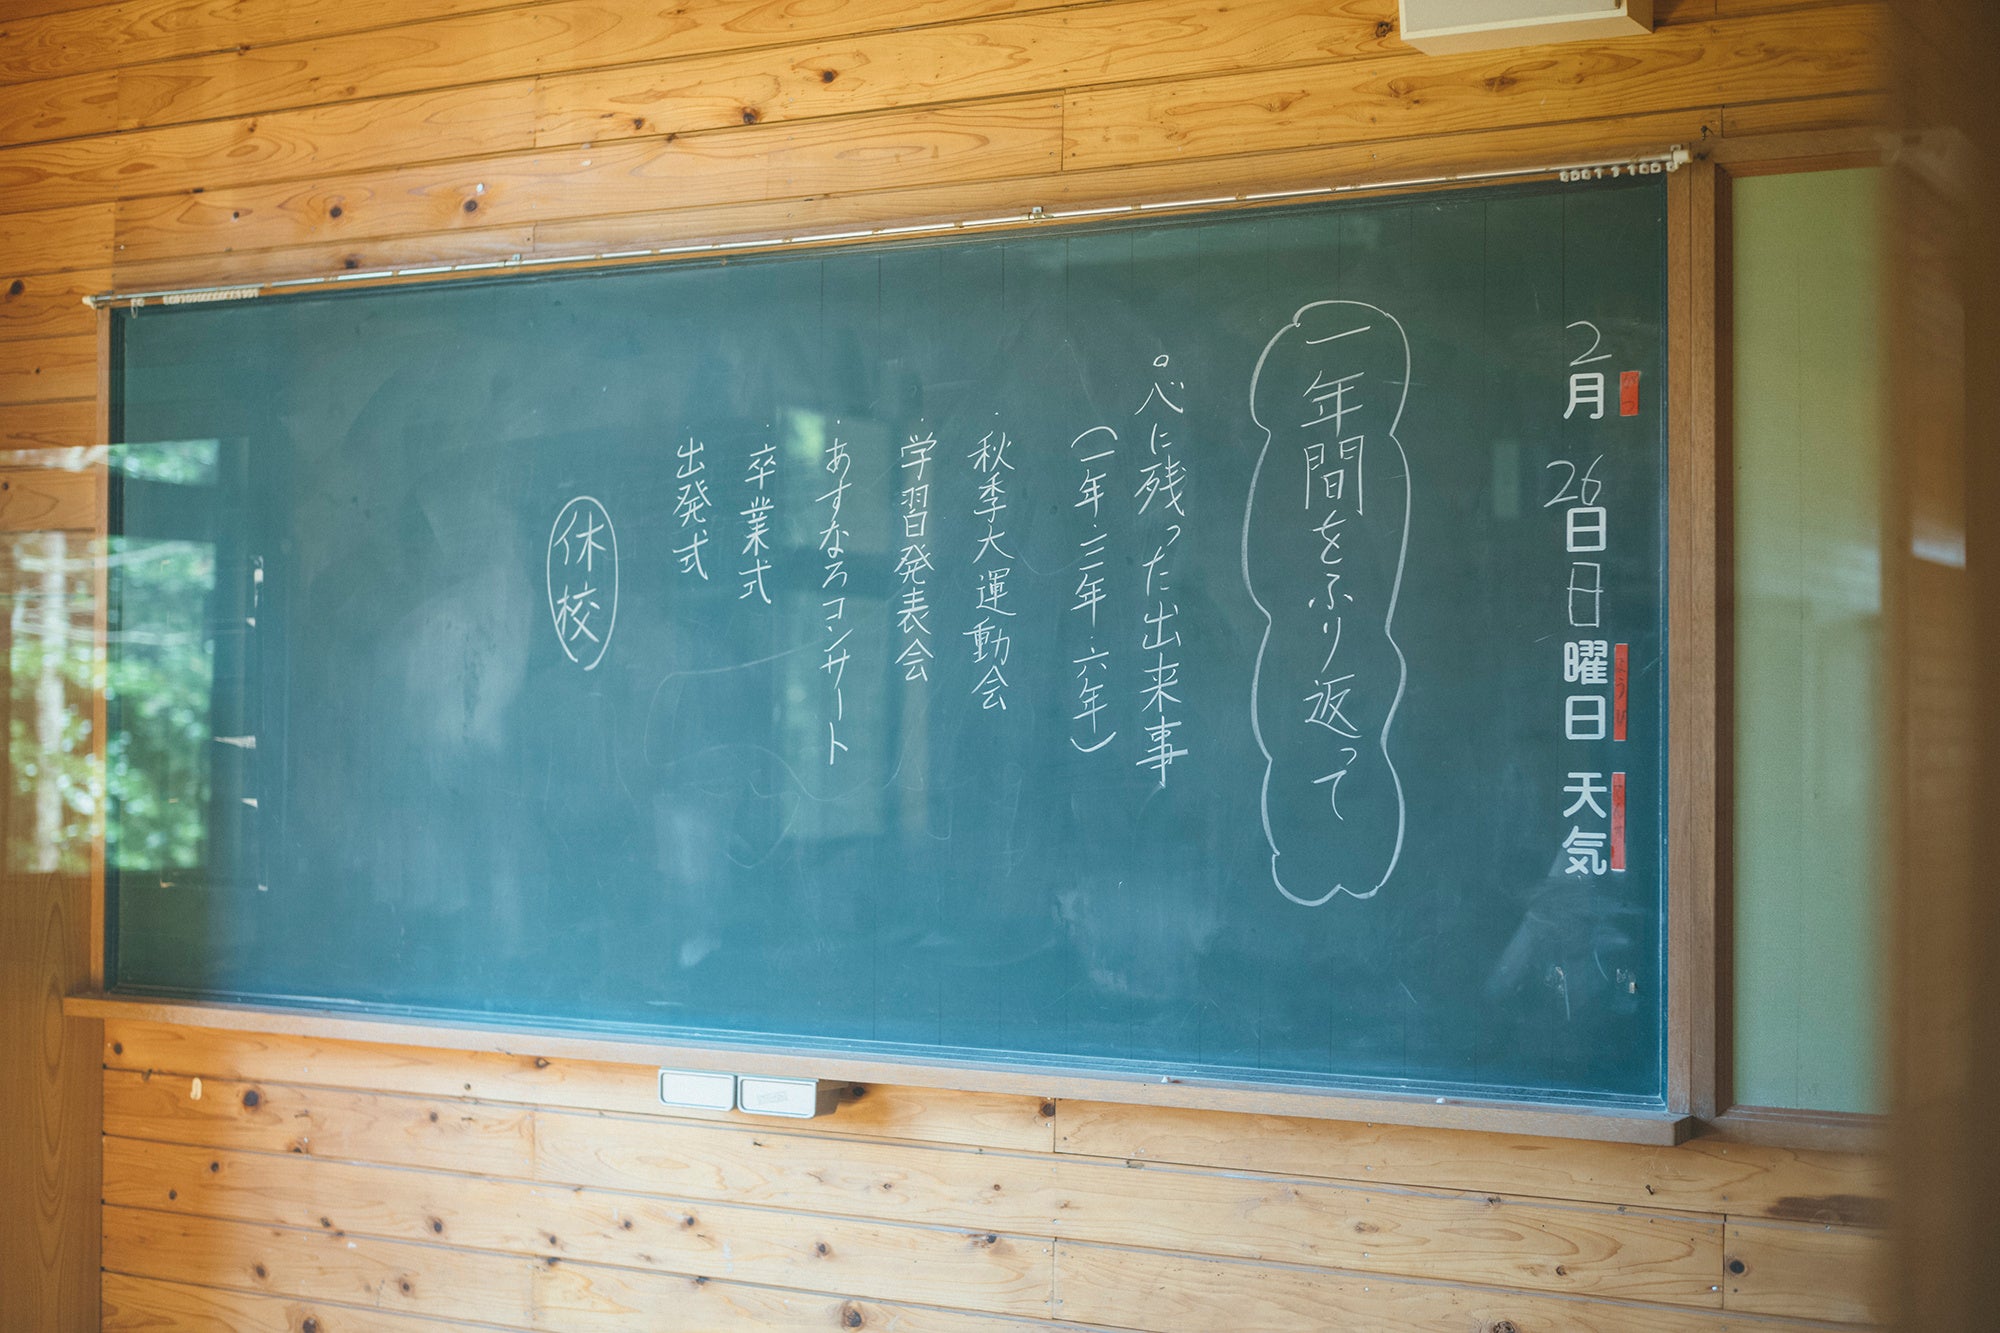 2月26日日曜日 天気
がつ
ようび
一年間をふり返って
。心に残った出来事
(一年・三年・六年)
・秋季大運動会
・学習発表会
・あすなろコンサート
・卒業式
・出発式
休校